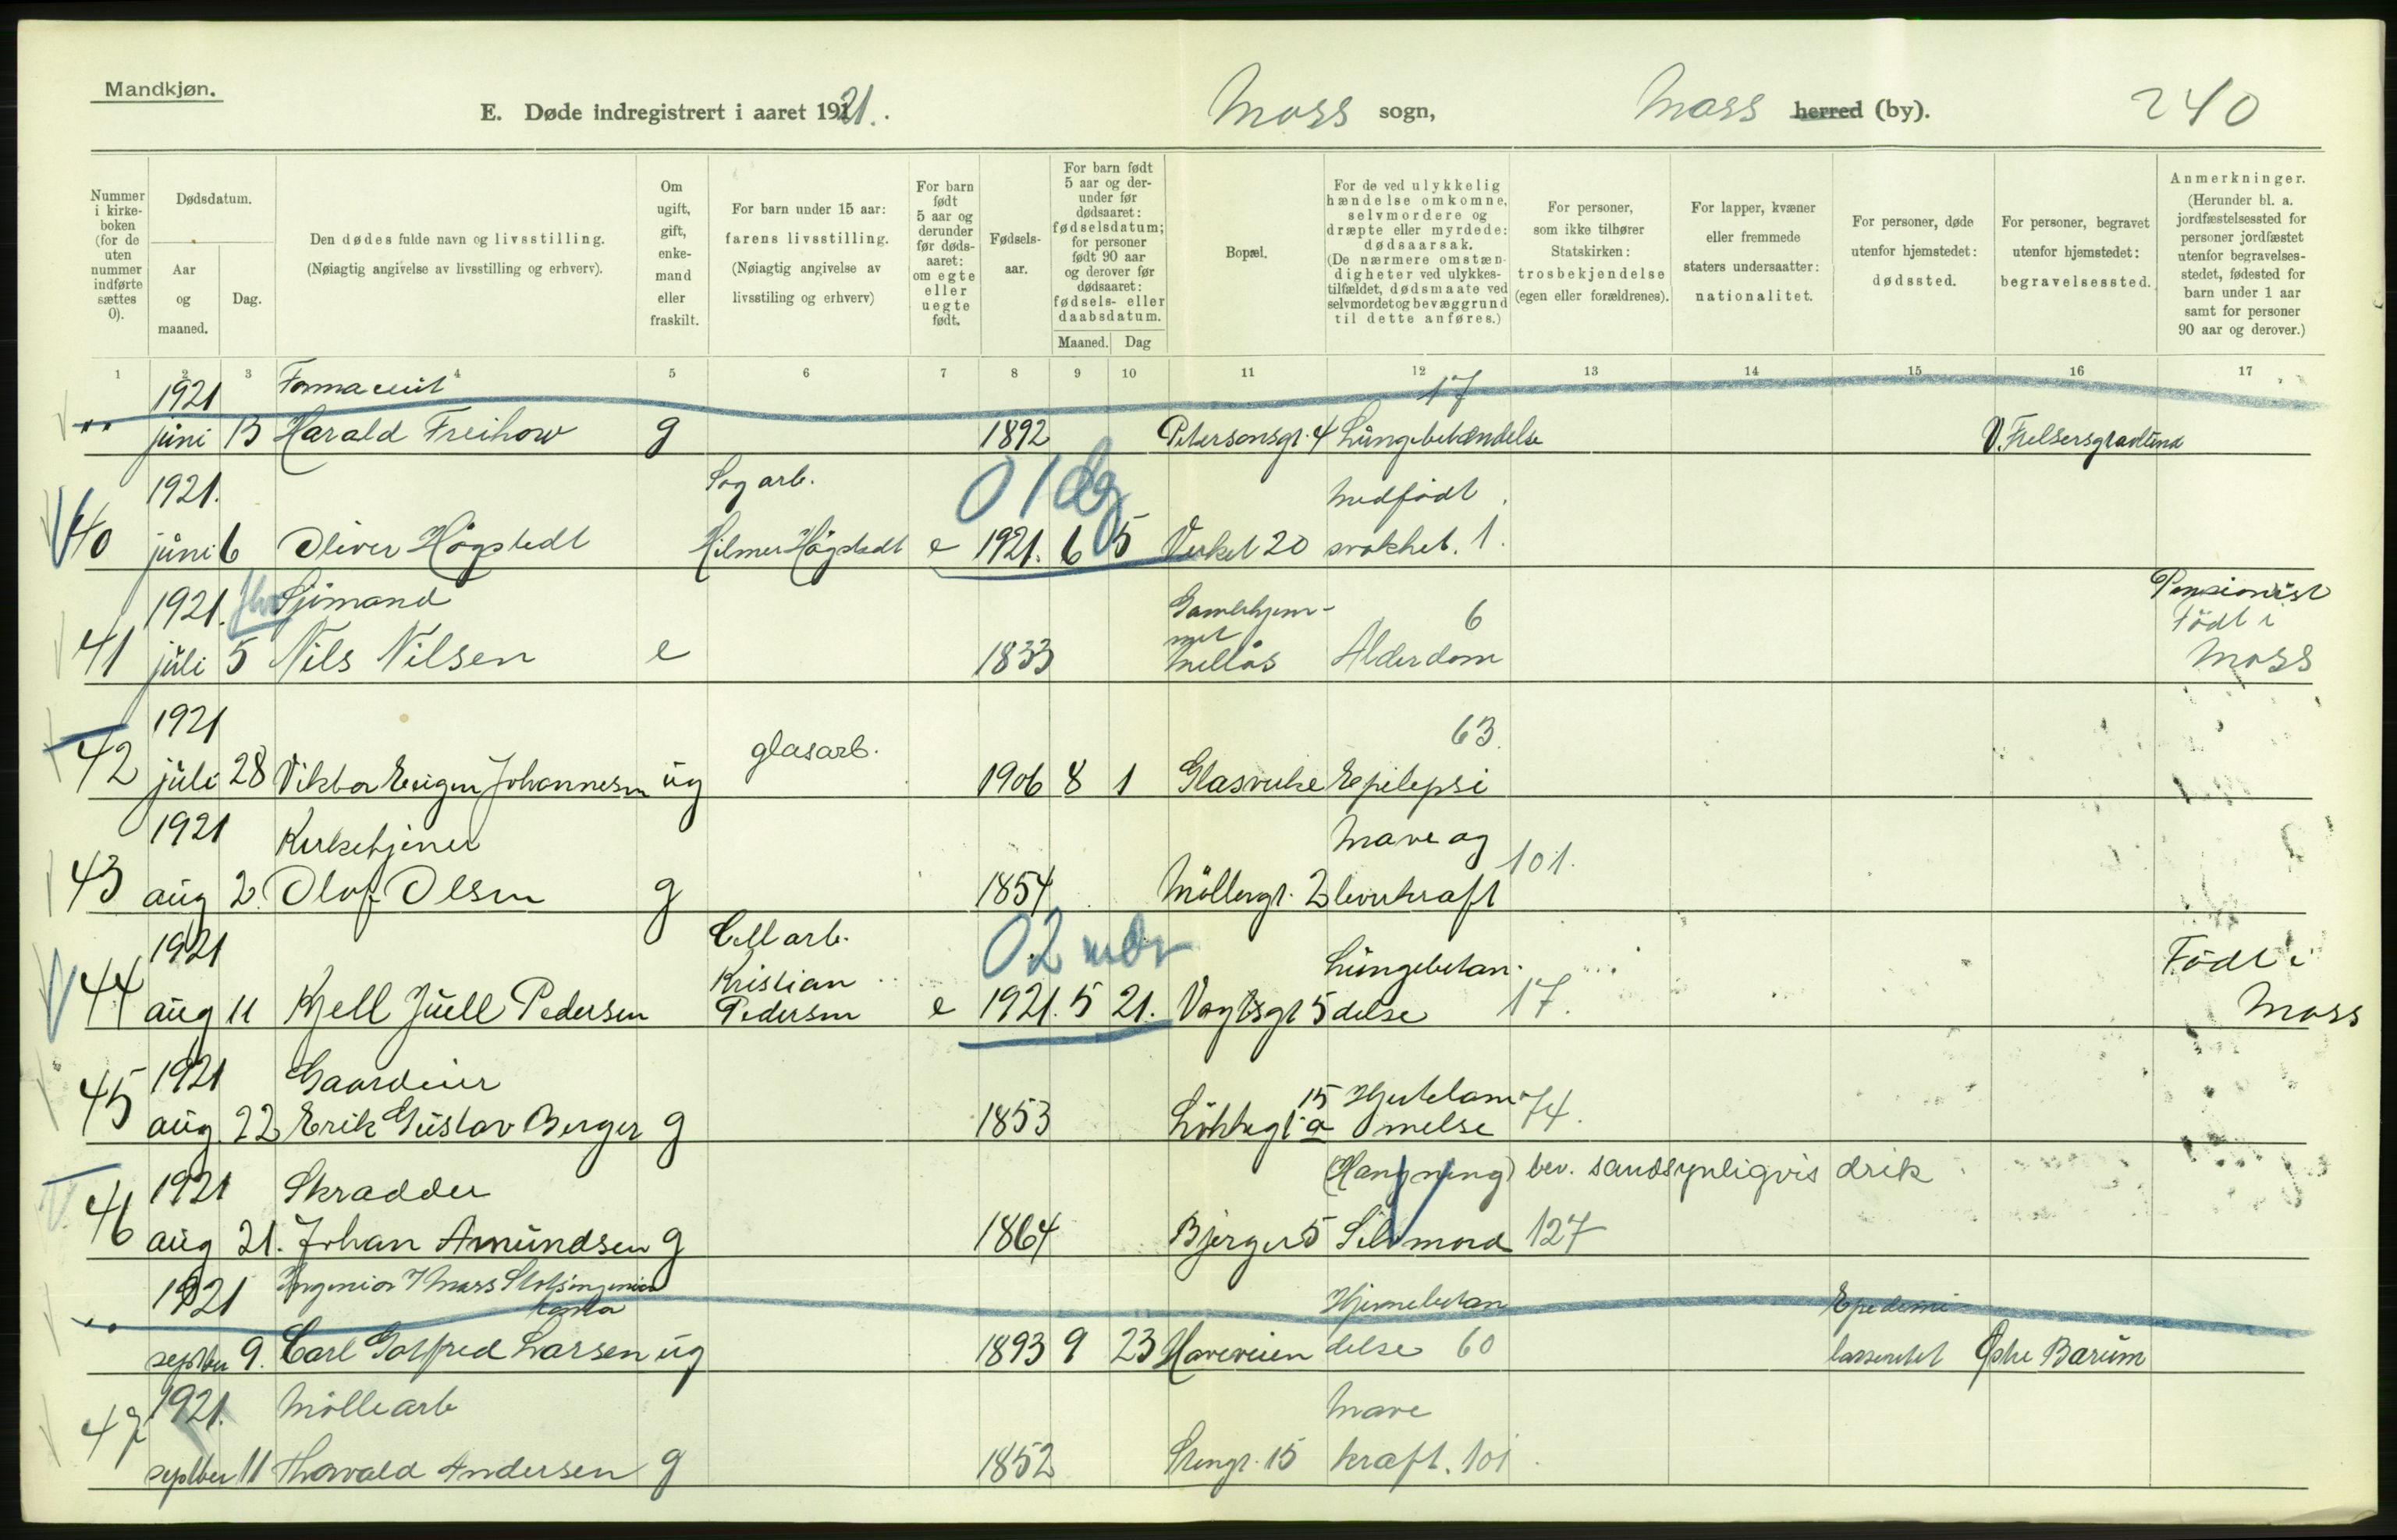 Mandkjøn.
E. Døde indregistrert i aaret 1921.
Moss sogn,
Moss herred (by).
240
Nummer i kirke- boken (for de uten nummer indførte sættes 0).
Dødsdatum.
Aar og maaned.
Dag.
Den dødes fulde navn og livsstilling.
(Nøiagtig angivelse av livsstilling og erhverv).
Om ugift, gift, enke- mand eller fraskilt.
For barn under 15 aar: farens livsstilling.
(Nøiagtig angivelse av livsstiling og erhverv)
For barn født 5 aar og derunder før døds- aaret: om egte eller uegte født.
Fødsels- aar.
For barn født 5 aar og der- under før dødsaaret: fødselsdatum; for personer født 90 aar og derover før dødsaaret: fødsels- eller daabsdatum.
Maaned. Dag
Bopæl.
For de ved ulykkelig hændelse omkomne, selvmordere og dræpte eller myrdede: dødsaarsak.
(De nærmere omstæn- digheter ved ulykkes- tilfældet, dødsmaate ved selvmordet og bevæggrund til dette anføres.)
For personer, som ikke tilhører Statskirken: trosbekjendelse (egen eller forældrenes).
For lapper, kvæner eller fremmede staters undersaatter: nationalitet.
For personer, døde utenfor hjemstedet: dødssted.
For personer, begravet utenfor hjemstedet: begravelsessted.
Anmerkninger.
(Herunder bl. a. jordfæstelsessted for personer jordfæstet utenfor begravelses- stedet, fødested for barn under 1 aar samt for personer 90 aar og derover.)
1 2 3 4 5 6 7 8 9 10 11 12 13 14 15 16 17
1921 17
" juni 13 Harald Freihow g 1892 Petersonsgt. 4 Lungebetændelse
1921. Sag arb. 01dg Medfødt
40 juni 6 Oliver Högstedt Hilmer Högstedt e 1921. 6 5 Verket 20 svakhet. 1.
1921. Sjömand Gamlehjem- 6 Pensionist Födt i
41 juli 5 Nils Nilsen e 1833 met Melløs Alderdom Moss
1921 glasarb. 63.
42 juli 28 Viktor Eugen Johannesen ug 1906 8 1 Glasverket Epilepsi
1921 Kirketjener Mave og 101.
43 aug 2. Olof Olsen g 1854 Möllergt. 2 leverkraft
1921 Cell arb. 02 mdr Lungebetæn- Födt i
44 aug 11 Kjell Juell Pedersen Kristian Pedersen e 1921. 5 21. Vogtsgt 5 delse 17. Moss
1921 Gaardeier 15 Hjertelam- 74.
45 aug. 22 Erik Gustav Berger g 1853 a melse
1921 Skrædder (Hængning) bev. sandsynligvis drik
46 aug 21. Johan Amundsen g 1864 Bjerget 5 Selvmord 127
1921 Ingeniør Hjernebetæn Epedemi
" septber 9. Carl Gotfred Larsen ug 1893 9 23 Haveveien delse 60 lasarettet Østre Bærum
1921. Möllearb Mave
47 septber 11 Thorvald Andersen g 1852 Stengt. 15 kraft. 101